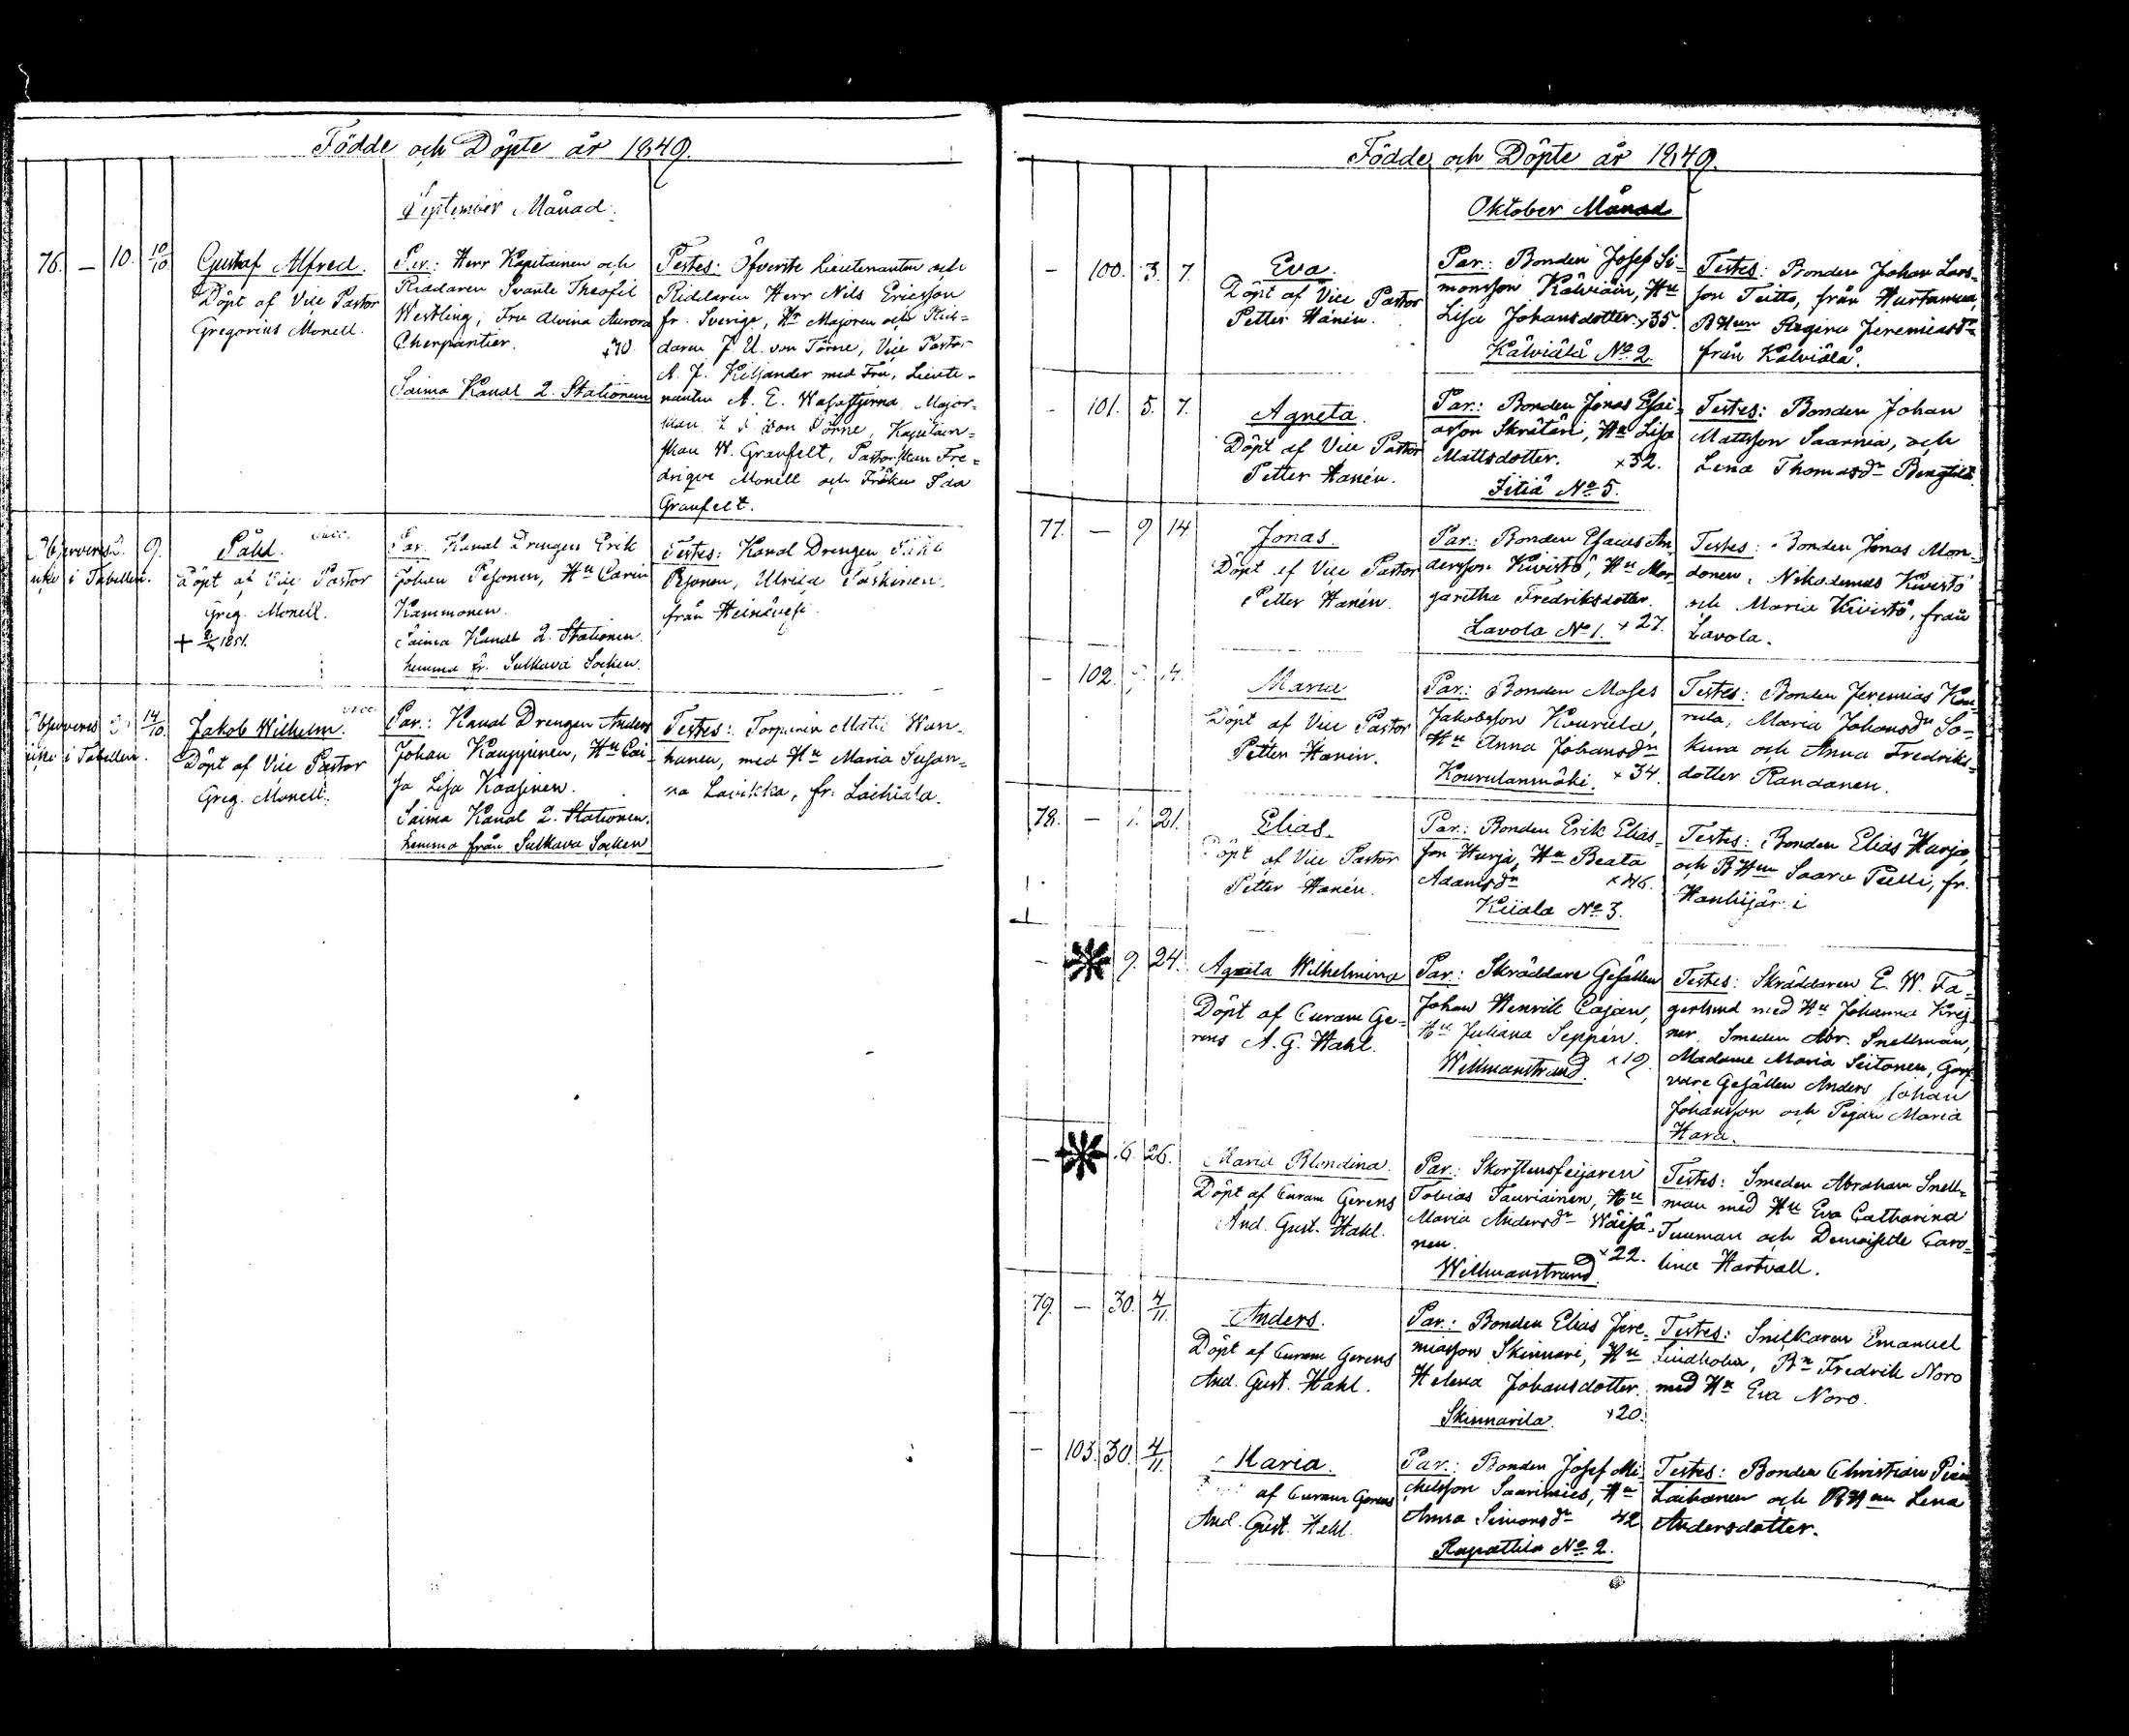 Födde och Döpte år 1849.
September Månad.
76. — 10. 10/10
Gustaf Alfred.
Döpt af Vice Pastor
Gregorius Monell.
Par.: Herr Kapitainen och
Riddaren Svante Theofil
Westling, Fru Alvina Aurora
Cherpantier.
Saima Kanal 2. Stationen
Testes: Öfverste Lieutenanten och
Riddaren Herr Nils Ericsson
fr. Sverige, Hr Majoren och Rid-
daren J. U. von Törne, Vice Pastor
A. J. Kiljander med Fru, Lieute-
nanten A. E. Wasastjerna, Major-
skan von Törne, Kapitain-
skan W. Granfelt, Pastorskan Fre-
drique Monell och Fröken Ida
Granfelt.
Observeras
icke i Tabellen.
9.
vacc.
Påhl.
Döpt af Vice Pastor
Greg. Monell.
+ 1851.
Par. Kanal Drengen Erik
Johan Pesonen, Hu Carin
Kammonen.
Saima Kanal 2. Stationen.
hemma fr. Sulkava Socken.
Testes: Kanal Drengen Påhl
Pesonen, Ulrika Paskinen.
från Heinävesi.
Observeras 14/10
icke i Tabellen.
vacc.
Jakob Wilhelm.
Döpt af Vice Pastor
Greg. Monell.
Par.: Kanal Drengen Anders
Johan Kauppinen, Hu Cai-
sa Lisa Kaasinen.
Saima Kanal 2. Stationen.
hemma från Sulkava Socken
Testes: Torparen Matti Wan-
hanen, med Hu Maria Susan-
na Lavikka, fr. Laihiala.
Födde och Döpte år 1849.
Oktober Månad
— 100. 3. 7.
Eva.
Döpt af Vice Pastor
Petter Hanén.
Par.: Bonden Josef Si-
monsson Kälviäin, Hu
Lisa Johansdotter. x35.
Kälviälä No 2.
Testes: Bonden Johan Lars-
son Teitto, från Hurtanmaa,
BHun Regina Jeremiasdr
från Kälviälä.
— 101. 5. 7.
Agneta.
Döpt af Vice Pastor
Petter Hanén.
Par.: Bonden Jonas Esai-
asson Skrätäri, Hu Lisa
Mattsdotter. x32.
Jitiä No 5.
Testes: Bonden Johan
Mattsson Saarnia, och
Lena Thomasdr
77. — 9 14.
Jonas.
Döpt af Vice Pastor
Petter Hanén.
Par.: Bonden Esaias An-
dersson Kivistö, Hu Mar-
garetha Fredriksdotter.
Lavola No 1. x27.
Testes: Bonden Jonas Mon-
donen, Nikodemus Kivistö
och Maria Kivistö, från
Lavola.
— 102.
Maria
Döpt af Vice Pastor
Petter Hanén.
Par.: Bonden Moses
Jakobsson Kourula,
Hu Anna Johansdr
Kourulanmäki. x34.
Testes: Bonden Jeremias Kou-
rula, Maria Johansdr So-
kura och Anna Fredriks-
dotter Randanen.
78. — 21.
Elias.
Döpt af Vice Pastor
Petter Hanén.
Par.: Bonden Erik Elias-
son Hurja, Hu Beata
Adamsdr x46.
Kiiala No 3.
Testes: Bonden Elias Hurja,
och BHun Saara Pelli, fr.
Hanhijärvi
— 9. 24.
Agneta Wilhelmina
Döpt af Curam Ge-
rens A. G. Hahl.
Par.: Skräddare Gesällen
Johan Henrik Cajan,
Hu Juliana Seppén.
Willmanstrand. x19.
Testes: Skräddaren E. W. Fa-
gerlund med Hu Johanna
Smeden Abr. Snellman,
Madame Maria Seitonen, Garf-
vare Gesällen Anders Johan
Johansson och Pigan Maria
Hara.
— 6. 26.
Maria Blondina.
Döpt af Curam Gerens
And. Gust. Hahl.
Par.: Skorstensfejaren
Tobias Tauriainen, Hu
Maria Andersdr Wäisä-
nen. x22.
Willmanstrand.
Testes: Smeden Abraham Snell-
man med Hu Eva Catharina
Tuuman och Demoiselle Caro-
lina Hartvall.
79. — 30. 4/11.
Anders.
Döpt af Curam Gerens
And. Gust. Hahl.
Par.: Bonden Elias Jere-
miasson Skinnari, Hu
Helena Johansdotter.
Skinnarila. x20.
Testes: Snickaren Emanuel
Lindholm, Bn Fredrik Noro
med Hu Eva Noro.
— 103. 30. 4/11.
Maria.
af Curam Gerens
And. Gust. Hahl.
Par.: Bonden Josef Mi-
chelsson Saarimies, Hu
Anna Simonsdr 42
Rapattila No 2.
Testes: Bonden Christian
Laihanen och BHun Lena
Andersdotter.